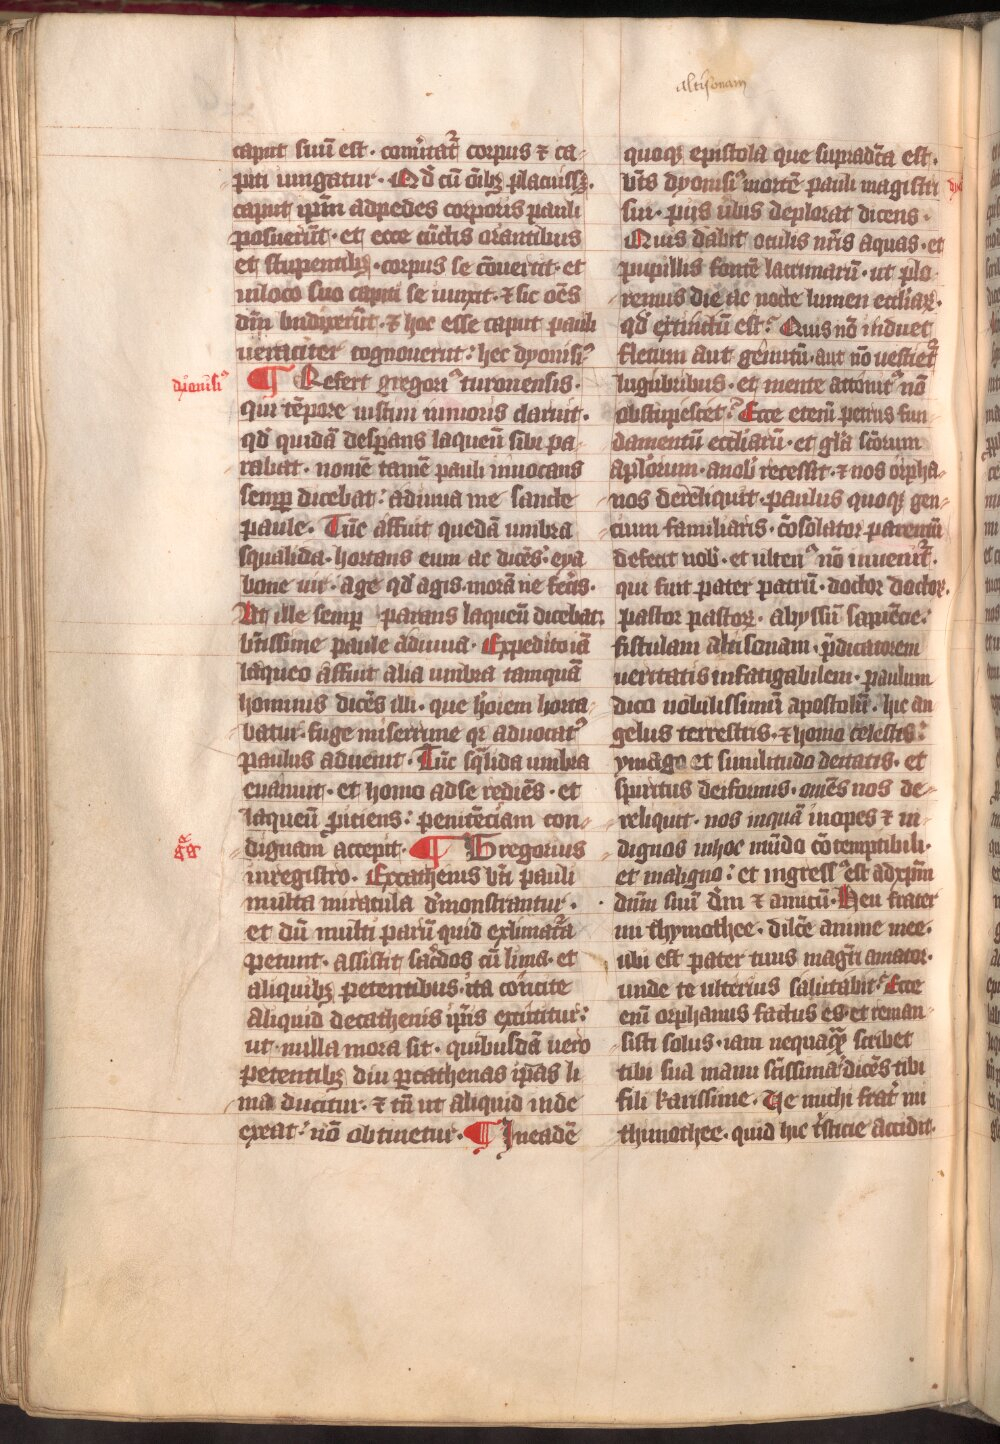 altisonam
caput suū est · comūtat᷑ corpus ⁊ ca-
piti iungatur · Qd̄ cū oībꝫ placuissꝫ ·
caput ip̄m ad pedes corporis pauli
posuerūt · et ecce cūctis orantibus
et stupentibꝫ · corpus se cōuertit · et
in loco suo capiti se iunxit · ⁊ sic oēs
dn̄m bn̄dixerūt · ⁊ hoc esse caput pauli
ueraciter cognouerūt : hec dyonisi᷒
dionisi᷒
¶ Refert gregori᷒ turonensis ·
qui tēpore iustini iunioris claruit ·
qd̄ quidā desꝑans laqueū sibi pa-
rabat · nomē tamē pauli inuocans
semꝑ dicebat : adiuua me sancte
paule · Tūc affuit quedā umbra
squalida · hortans eum ac dicēs · eya
bone uir · age qd̄ agis · morā ne fec̄is ·
At ille semꝑ parans laqueū dicebat :
btīssime paule adiuua · Expedito iā
laqueo affuit alia umbra tamquā
hominis dicēs illi · que hoīem horta-
batur · fuge miserrime qr aduocat᷒
paulus aduenit · Tūc sq̄lida umbra
euanuit · et homo ad se rediēs · et
laqueū ꝓiciens : penitēciam con-
gg
dignam accepit · ¶ Gregorius
in registro · Ex cathenis bt̄i pauli
multa miracula dmonstrantur ·
et dū multi parū quid ex limat᷑a
petunt · assistit sac̄dos cū lima · et
aliquibꝫ petentibus ita cōcite
aliquid de cathenis ip̄is excutitur :
ut nulla mora sit · quibusdā uero
petentibꝫ diu ꝑ cathenas ip̄as li
ma ducitur · ⁊ tn̄ ut aliquid inde
exeat : nō obtinetur · ¶ In eadē
quoqꝫ epistola que supradc̄a est ·
bt̄s dyonisi᷒ mortē pauli magistri
sui · pijs ūbis deplorat dicens ·
Quis dabit oculis nr̄is aquas · et
pupillis fontē lacrimarū · ut plo
remus die ac nocte lumen eccliaꝝ ·
qd̄ extinctū est : Quis nō induet
fletum aut gēnitū · aut nō uestiet᷑
lugubribus · et mente attonit᷒ nō
obstupescet : Ecce etenī petrus fun-
damentū eccliarū · et gl̄a sc̄orum
apl̄orum · a nob̄ recessit · ⁊ nos orpha-
nos dereliquit · paulus quoqꝫ gen-
cium familiaris · cōsolator parentū
defecit nob̄ · et ulteri᷒ nō inuenit᷑ ·
qui fuit pater patrū · doctor doctoꝝ ·
pastor pastoꝝ · abyssū sapiēcie :
fistulam altisonam · p̄dicatorem
ueritatis infatigabilem · paulum
dico nobilissimū apostolū · hic an-
gelus terrestris · ⁊ homo celestis :
ymago et similitudo deitatis · et
spiritus deiformis · omēs nos de-
reliquit · nos inquā inopes ⁊ in-
dignos in hoc mūdo cōtemptibili ·
et maligno : et ingress᷒ est ad xp̄m
dn̄m suū dm̄ ⁊ amicū · Heu frater
mi thymothee · dilc̄e anime mee ·
ubi est pater tuus magr̄i amator ·
unde te ulterius salutabit : Ecce
enī orphanus factus es · et reman-
sisti solus · iam nequaꝙ̄ scribet
tibi sua manu sc̄issima dicēs tibi
fili karissime · Ve michi frat᷑ mi
thimothee · quid hic tr̄isticie accidit ·